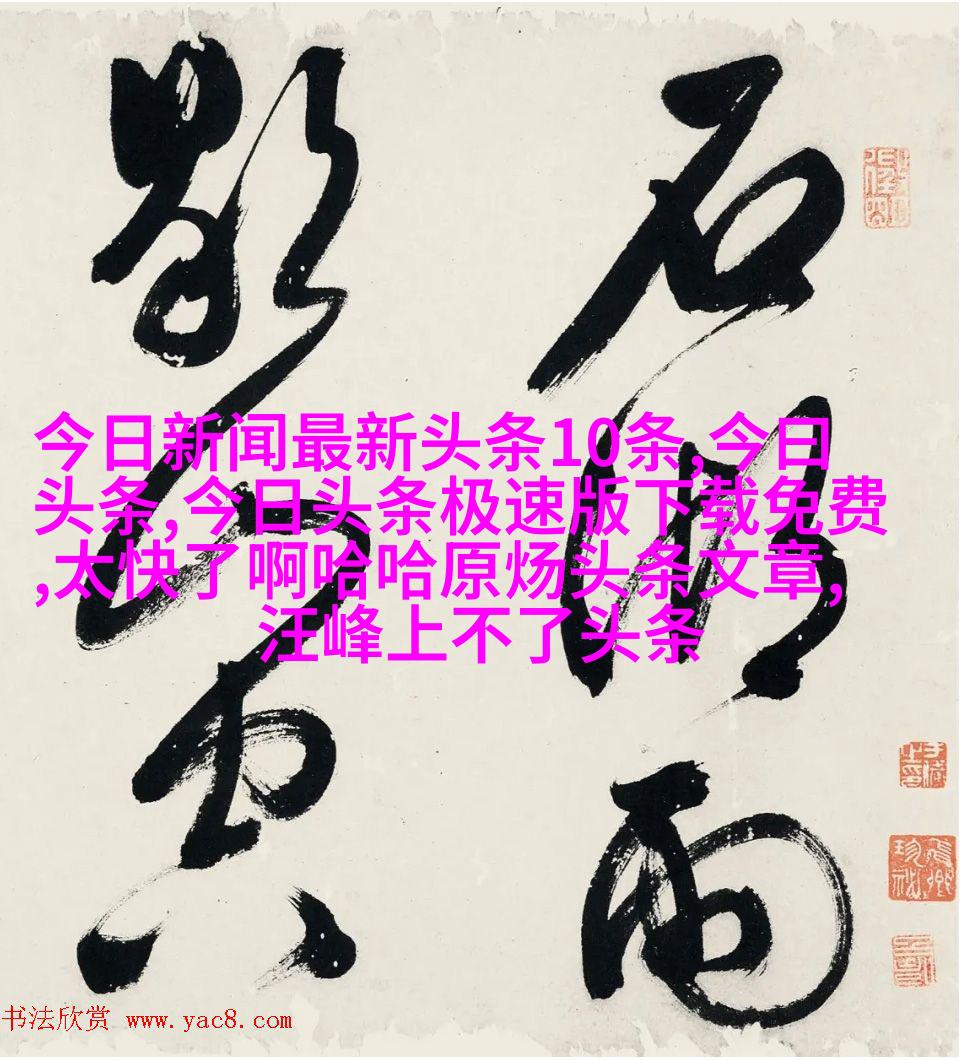 石湖雨
歇山空
今日新闻最新头条10条,今曰
头条,今日头条极速版下载免费
,太快了啊哈哈原炀头条文章,
汪峰上不了头条
书法欣赏 www.yac8.com